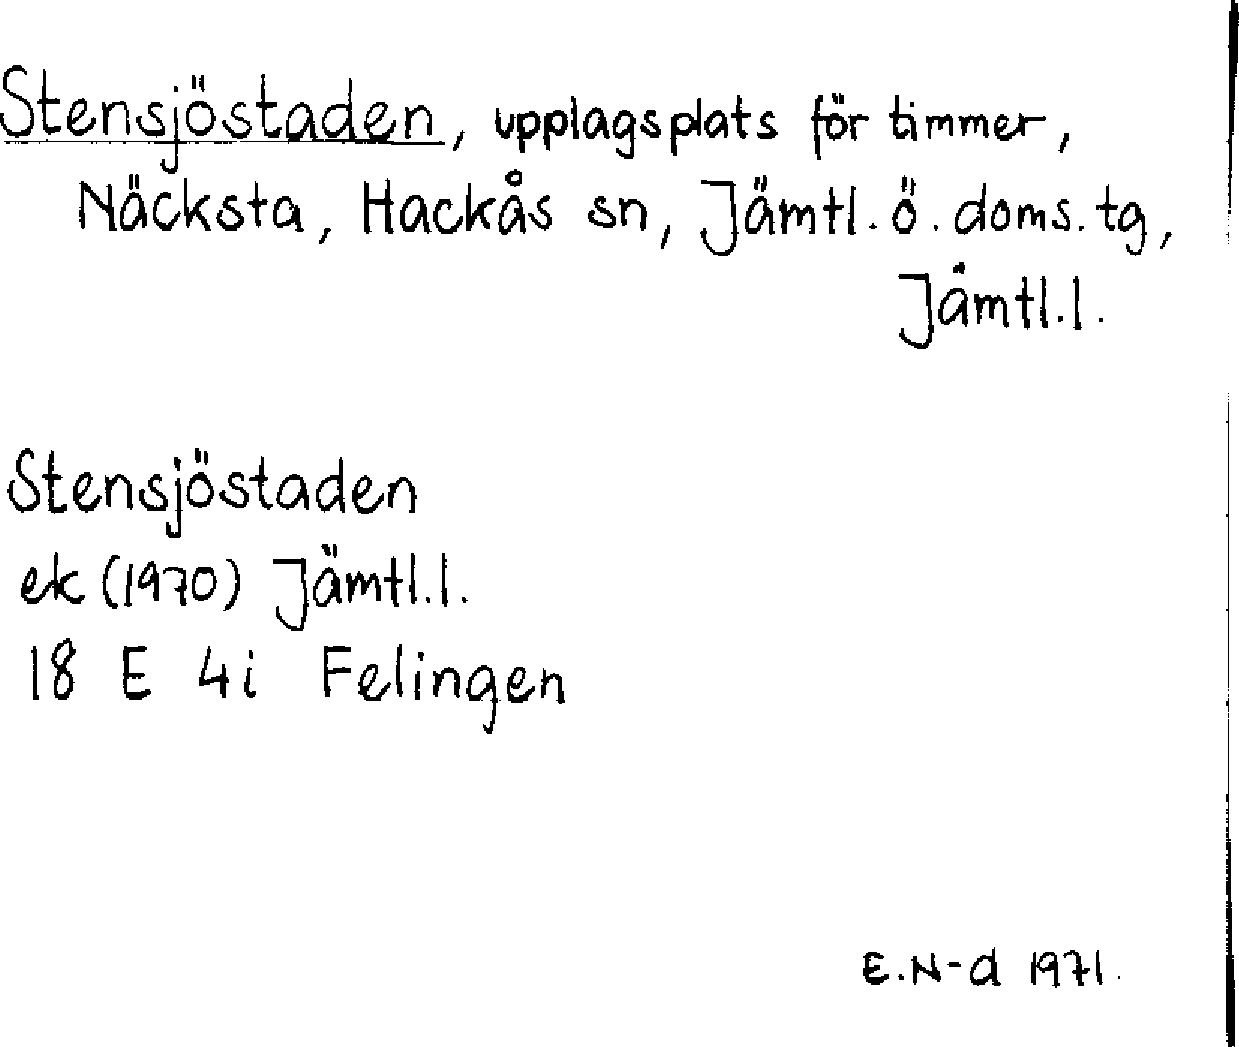 Stensjöstaden, upplagsplats för timmer,
Näcksta, Hackås sn, Jämtl. ö. doms. tg,
Jämtl. l.
Stensjöstaden
ek (1970) Jämtl. l.
18 E 4i Felingen
E.N-d 1971.